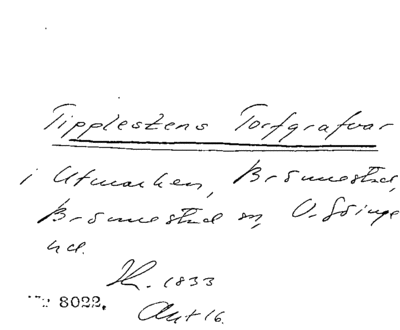 Tipplestens Torfgrafvar
i Utmarken, Brömestad,
Brömestad sn, V. Göinge
hd.
Th. 1833
8022.
Akt 16.